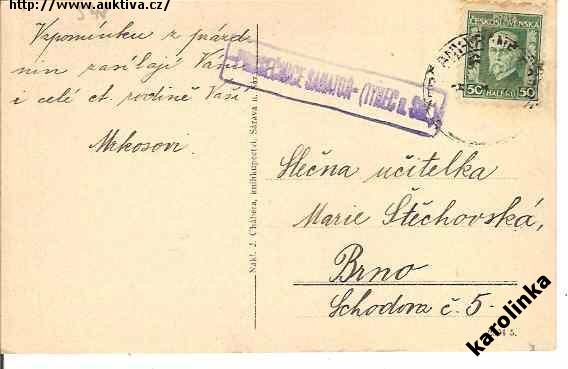 http://www.auktiva.cz/
Vzpomínku z prázd
nin zasílají Vám
i celé ct. rodině Vaší
Mrkosovi.
Nakl. J. Chábera, knihkupectví, Sázava n. Sáz.
(TÝNEC n. SÁZ.)
ČESKOSLOVENSKÁ
50 HALÉŘŮ 50
Slečna učitelka
Marie Štěchovská,
Brno
Schodova č. 5-
karolinka